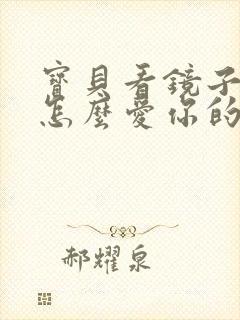 寶貝看鏡子
怎麼愛你的
郝耀泉